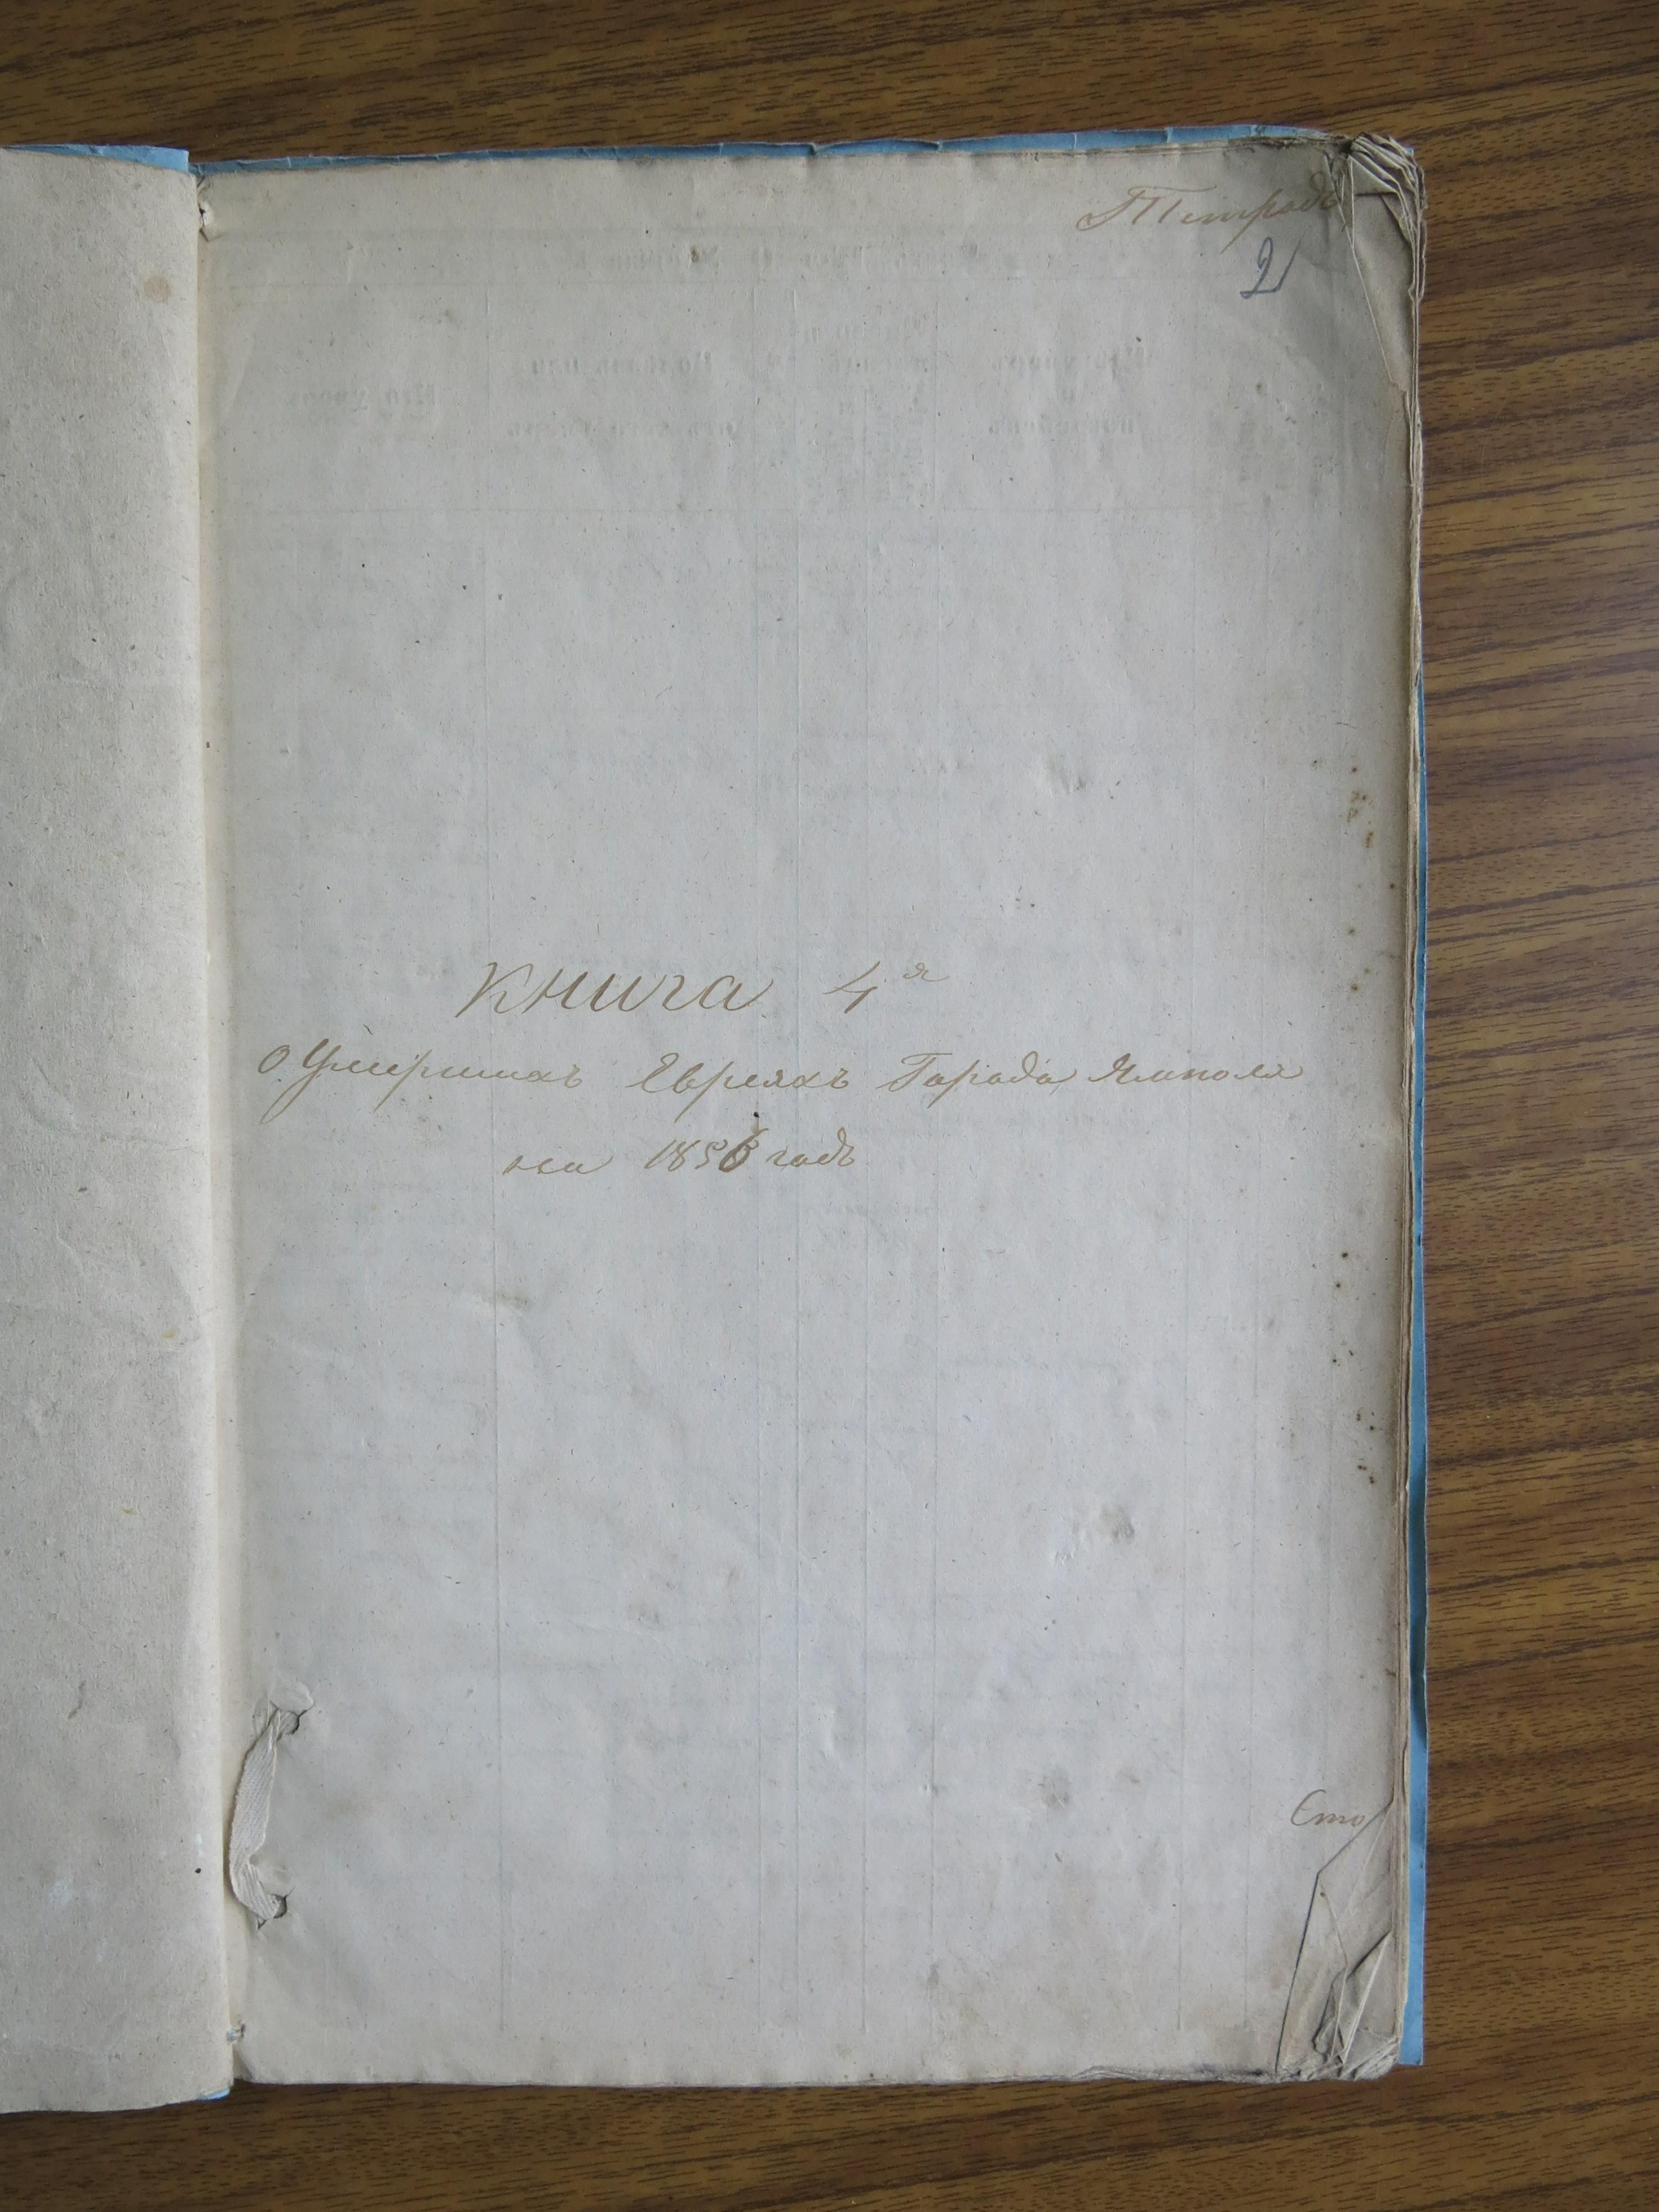 Тетрадь
2
Книга 4я
О Умершихъ Евреяхъ Города Ямполя
на 1856 годъ